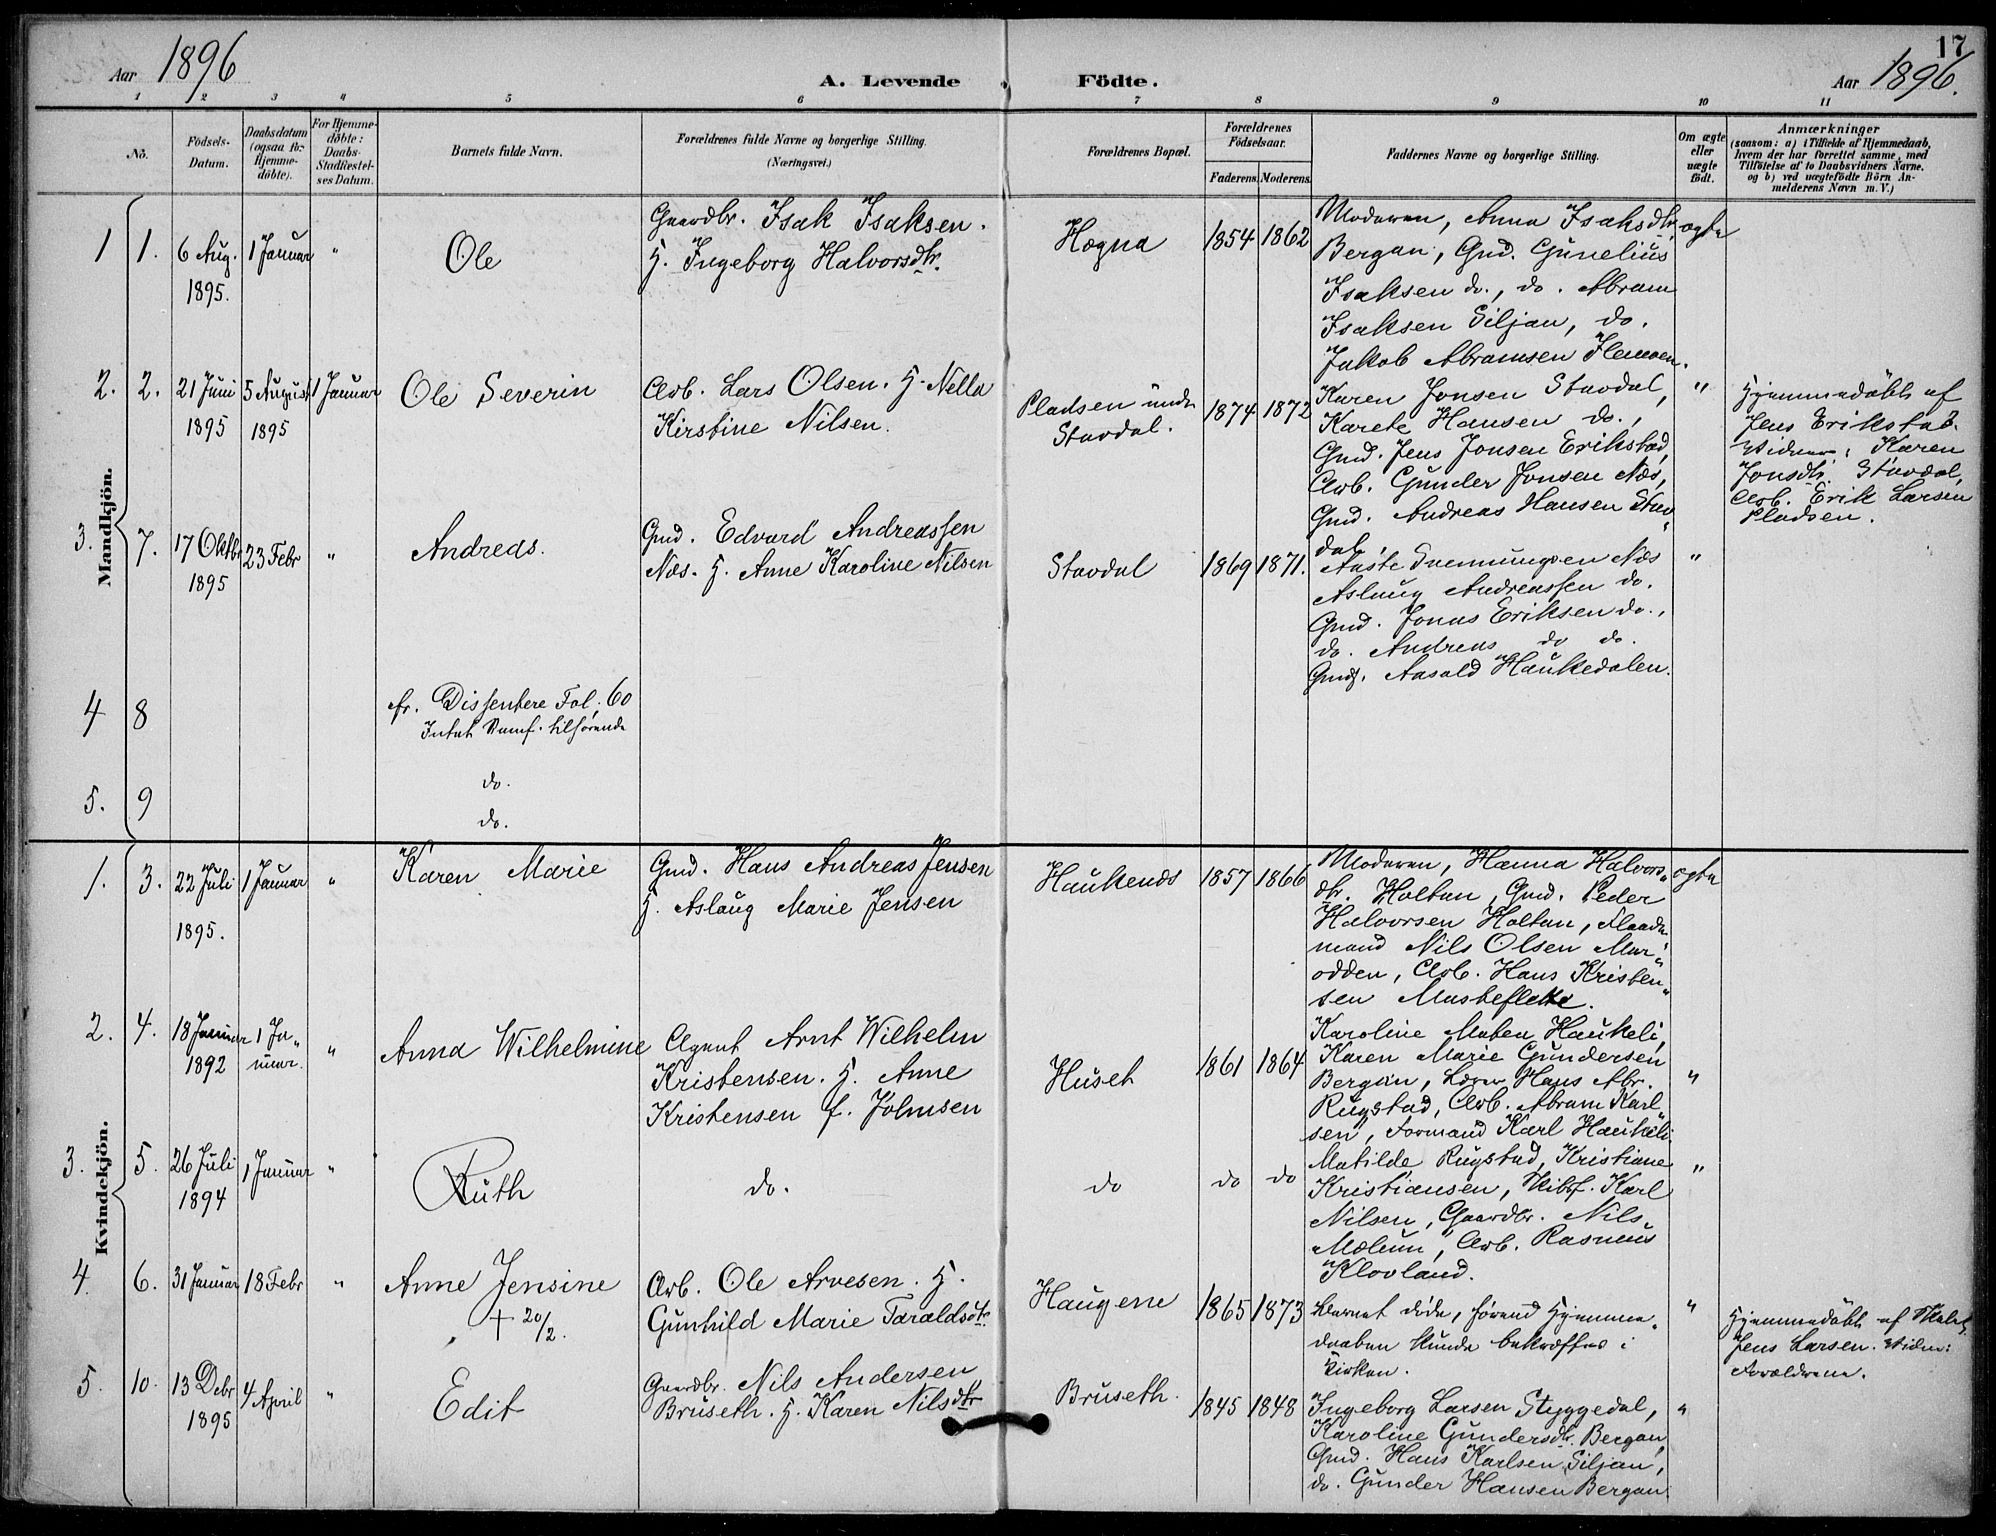 17
Aar 1896
A. Levende Födte.
Aar 1896.
1 2 3 4 5 6 7 8 9 10 11
No.
Födsels-Datum.
Daabsdatum (ogsaa for Hjemme-döbte).
For Hjemme-döbte: Daabs-Stadfæstel-ses Datum.
Barnets fulde Navn.
Forældrenes fulde Navne og borgerlige Stilling.
(Næringsvei.)
Forældrenes Bopæl.
Forældrenes Födselsaar.
Faderens. Moderens.
Faddernes Navne og borgerlige Stilling.
Om ægte eller uægte födt.
Anmærkninger
(saasom: a) i Tilfælde af Hjemmedaab,
hvem der har forrettet samme, med
Tilföielse af to Daabsvidners Navne.
og b) ved uægtefödte Börn An-
melderens Navn m. V.)
Mandkjön.
1 1. 6 Aug. 1895. 1 Januar " Ole
Gaardbr. Isak Isaksen.
H. Ingeborg Halvorsdtr.
Høgna 1854 1862
Moderen, Anna Isaksdtr.
Bergan, Gmd. Gunelius
Isaksen do., do. Abram
Isaksen Siljan, do.
Jakob Abramsen Flemoen.
ægte
2. 2. 21 Juni 1895 5 August 1895 1 Januar Ole Severin
Arb. Lars Olsen. H. Nella
Kirstine Nilsen.
Pladsen under
Stavdal.
1874 1872
Karen Jonsen Stavdal,
Karete Hansen do.,
Gmd. Jens Jonsen Erikstad,
Arb. Gunder Jonsen Næs,
Gmd. Andreas Hansen Stav"
dal.
"
Hjemmedöbt af
Jens Erikstad.
Vidner: Karen
Jonsdtr. Stavdal,
Arb. Erik Larsen
Pladsen.
3. 7. 17 Oktbr 1895 23 Febr " Andreas.
Gmd. Edvard Andreassen
Næs. H. Anne Karoline Nilsen
Stavdal 1869 1871.
Aaste Svennungsen Næs
Aslaug Andreassen do.
Gmd. Jonas Eriksen do.,
do. Andreas do do.
Gmd. Aasold Haukedalen.
"
4 8
fr. Dissentere Fol. 60
tilhørende
do.
5. 9
do.
Kvindekjön.
1. 3. 22 Juli 1895. 1 Januar " Karen Marie
Gmd. Hans Andreas Jensen
H. Aslaug Marie Jensen
Haukenæs 1857 1866
Moderen, Hanna Halvors"
dtr. Holtan, Gmd. Peder
Halvorsen Holtan, Fløde
mand Nils Olsen Mar"
odden, Arb. Hans Kristen"
sen Masteflette.
ægte
2. 4. 18 Januar 1892 1 Ja"
nuar. " Anna Wilhelmine
Agent Arnt Wilhelm
Kristensen. H. Anne
Kristensen f. Johnsen
Huset 1861 1864
Karoline Maten Haukeli,
Karen Marie Gundersen
Bergan, Lærer Hans Abr.
Rugstad, Arb. Abram Karl"
sen, Formand Karl Haukeli
"
3. 5. 26 Juli 1894 1 Januar " Ruth
do.
do do do
Matilde Rugstad, Kristiane
Kristiansen, Skibsf. Karl
Nilsen, Gaardbr. Nils
Mælum, Arb. Rasmus
Klovland.
"
4. 6. 31 Januar 18 Febr " Anne Jensine
+ 20/2.
Arb. Ole Arvesen. H.
Gunhild Marie Taraldsdtr.
Haugene 1865 1873
Barnet døde, førend Hjemme"
daaben kunde bekræftes i
Kirken.
"
Hjemmedöbt af
Jens Larsen. Vidn:
Forældrene.
5. 10. 13 Debr 1895 4 April " Edit
Gaardbr. Nils Andersen
Bruseth. H. Karen Nilsdtr
Bruseth. 1845 1848
Ingeborg Larsen Styggedal,
Karoline Gundersdtr. Bergan,
Gmd. Hans Karlsen Siljan,
do. Gunder Hansen Bergan.
"